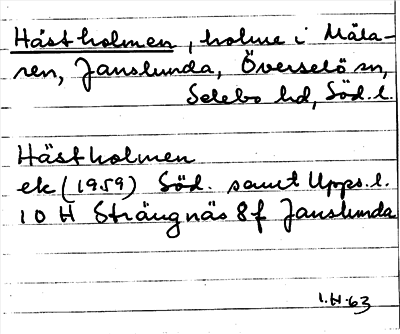 Hästholmen, holme i Mäla-
ren, Janslunda, Överselö sn,
Selebo hd, Söd. l.
Hästholmen
ek (1959) Söd. samt Upps. l.
10 H Strängnäs 8 f Janslunda